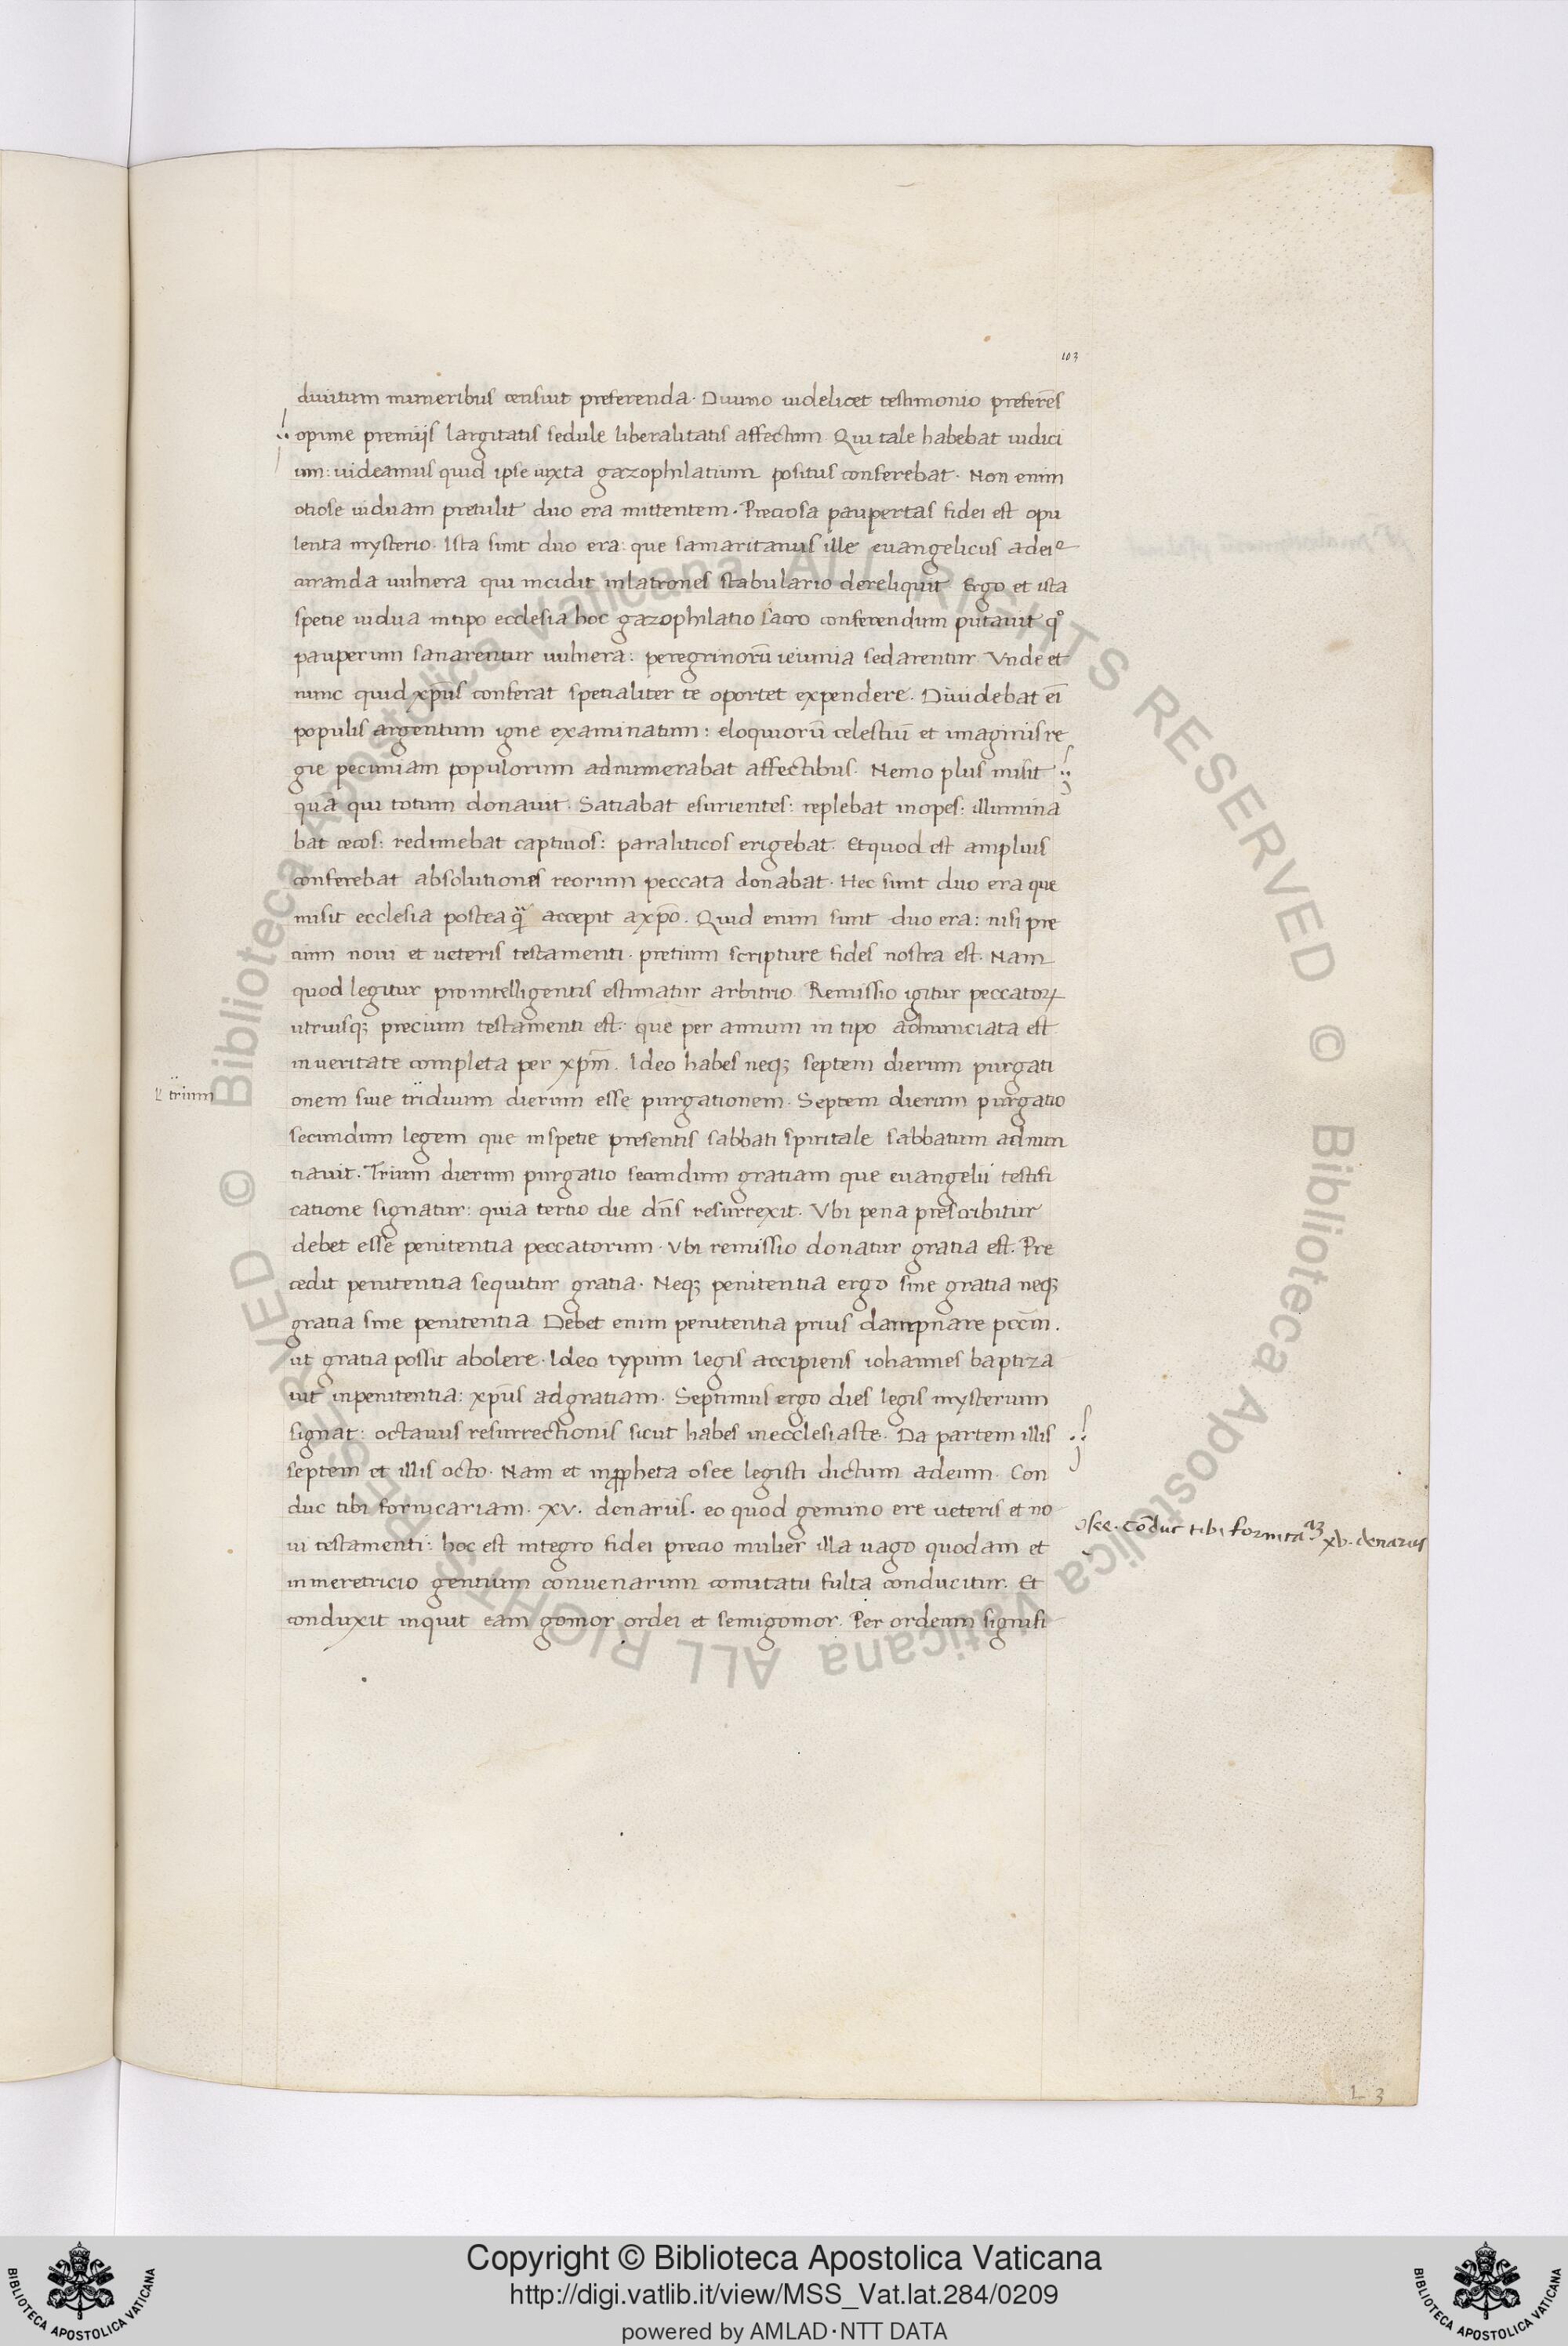 103
diuitum muneribus censuit preferenda. Diuino uidelicet testimonio preferēs
opime premijs largitatis sedule liberalitatis affectum. Qui tale habebat iudici
um: uideamus quid ipse iuxta gazophilatium positus conferebat. Non enim
otiose uiduam pretulit duo era mittentem. Preciosa paupertas fidei est opu
lenta mysterio. Ista sunt duo era: que samaritanus ille euangelicus ad ei⁹
curanda uulnera qui incidit inlatrones stabulario dereliquit Ergo et ista
spetie uidua intipo ecclesia hoc gazophilatio sacro conferendum putauit qͦ
pauperum sanarentur uulnera: peregrinorū ieiunia sedarentur Vnde et
nunc quid xp̄us conferat spetialiter te oportet expendere. Diuidebat eī
populis argentum igne examinatum: eloquiorū celestiū et imaginis re
gie pecuniam populorum adnumerabat affectibus. Nemo plus misit
quā qui totum donauit. Satiabat esurientes: replebat inopes: illumina
bat cecos: redimebat captiuos: paraliticos erigebat. Et quod est amplius
conferebat absolutiones reorum peccata donabat. Hec sunt duo era que
misit ecclesia postea q̄ accepit axp̄o. Quid enim sunt duo era: nisi pre
cium noui et ueteris testamenti. pretium scripture fides nostra est. Nam
quod legitur prointelligentis estimatur arbitrio. Remissio igitur peccatoꝝ
utriusqꝫ precium testamenti est. que per annum in tipo adnunciata est
in ueritate completa per xp̄m. Ideo habes neqꝫ septem dierum purgati
ł trium
onem siue triduum dierum esse purgationem. Septem dierum purgatio
secundum legem que inspetie presentis sabbati spiritale sabbatum adnun
tiauit. Trium dierum purgatio secundum gratiam que euangelii testifi
catione signatur: quia tertio die dn̄s resurrexit. Vbi pena prescribitur
debet esse penitentia peccatorum. Vbi remissio donatur gratia est. Pre
cedit penitentia sequitur gratia. Neqꝫ penitentia ergo sine gratia neqꝫ
gratia sine penitentia Debet enim penitentia prius dampnare pccm̄.
ut gratia possit abolere. Ideo typum legis accipiens iohannes baptiza
uit inpenitentia: xp̄us adgratiam. Septimus ergo dies legis mysterium
signat: octauus resurrectionis sicut habes inecclesiaste. Da partem illis
septem et illis octo. Nam et inꝓpheta osee legisti dictum adeum. Con
duc tibi fornicariam. xv. denariis. eo quod gemino ere ueteris et no
osee. cōduc tibi fornicaꝫ xv. denariis
ui testamenti: hoc est integro fidei precio mulier illa uago quodam et
inmeretricio gentium conuenarum comitatu fulta conducitur. Et
conduxit inquit eam gomor ordei et semigomor. Per ordeum signifi
L 3
Copyright © Biblioteca Apostolica Vaticana
http://digi.vatlib.it/view/MSS_Vat.lat.284/0209
powered by AMLAD·NTT DATA
BIBLIOTECA APOSTOLICA VATICANA
BIBLIOTECA APOSTOLICA VATICANA
© Biblioteca Apostolica Vaticana ALL RIGHTS RESERVED
© Biblioteca Apostolica Vaticana ALL RIGHTS RESERVED